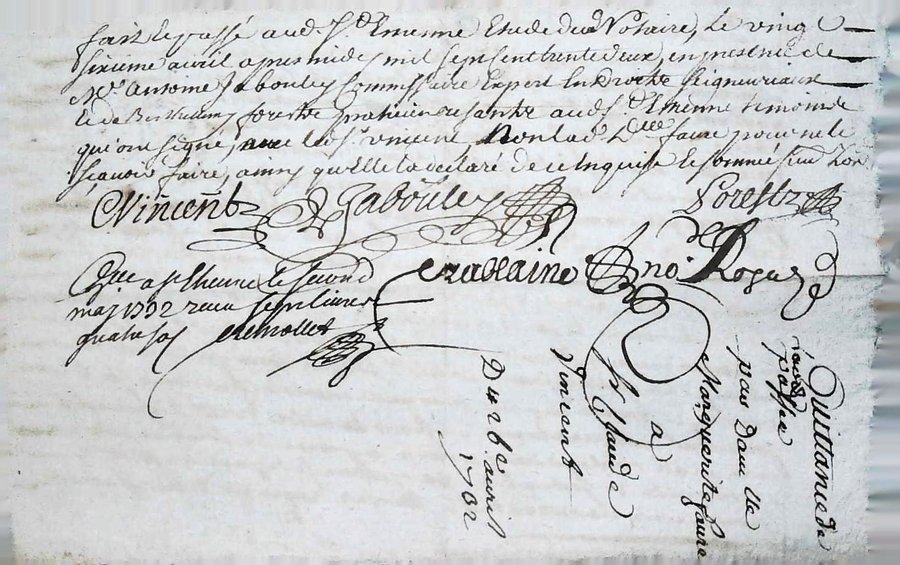 fait et passé aud. St. Etienne Etude dud. Notaire, Le vingt
sixieme avril apres midy mil sept cent trente deux, en presence de
Me. Antoine Jabouley Commissaire Expert En droits Seigneuriaux
Et de forestz praticien aud. St. Etienne temoins
qui ont signé, avec led. Sr. vincent, Non lad. Dlle. faure pour ne le
sçavoir faire, ainsy quelle la declaré de ce Enquise Et sommée
CVincent
Jabouley
Forestz
no. Royal
a St. Etienne le second
may 1732 receu sept livres
quatre sols
Quittance de
passée
par Dam.lle
Marguerite faure
a
Sr. Claude
Vincent
Du 26e. avril
1732